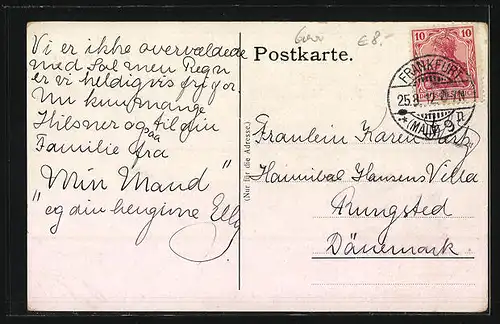 Postkarte.
€8.-
10 10
FRANKFURT
25.8.12
(MAIN)
9
Vi er ikke overvældede
med Sol men Regn
er vi heldigvis fri for
Nu kun mange
Hilsner og til din
paa
Familie fra
"Min Mand"
og din hengivne Elly
(Nur für die Adresse.)
Fraulein Karen
Hannibal Hansens Villa
Rungsted
Dänemark